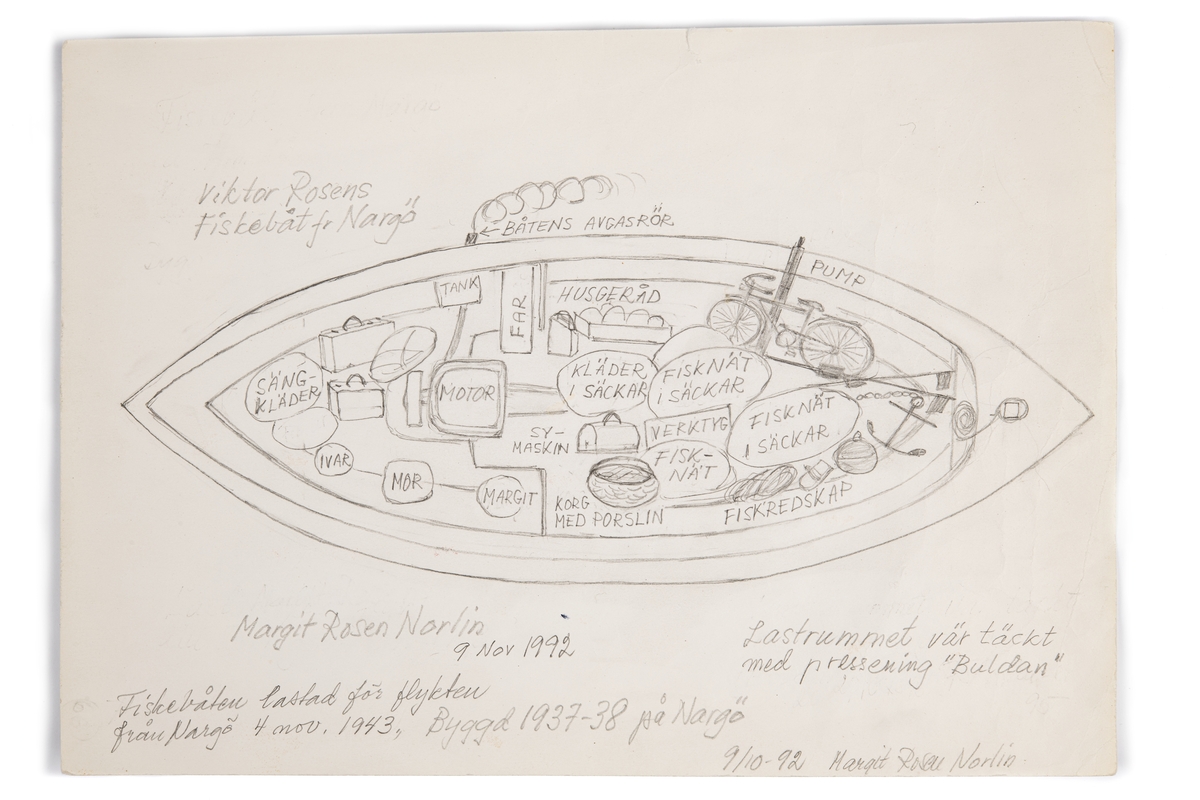 Viktor Rosens
Fiskebåt fr Nargö
← BÅTENS AVGASRÖR
PUMP
TANK
FAR
HUSGERÅD
SÄNG-
KLÄDER
MOTOR
KLÄDER
I SÄCKAR
FISKNÄT
I SÄCKAR
SY-
MASKIN
VERKTYG
FISKNÄT
I SÄCKAR
IVAR
MOR
MARGIT
FISK-
NÄT
KORG
MED PORSLIN
FISKREDSKAP
Margit Rosen Norlin
9 Nov 1992
Lastrummet vär täckt
med pressening "Buldan"
Fiskebåten lastad för flykten
från Nargö 4 nov. 1943, Byggd 1937-38 på Nargö
9/10-92 Margit Rosen Norlin